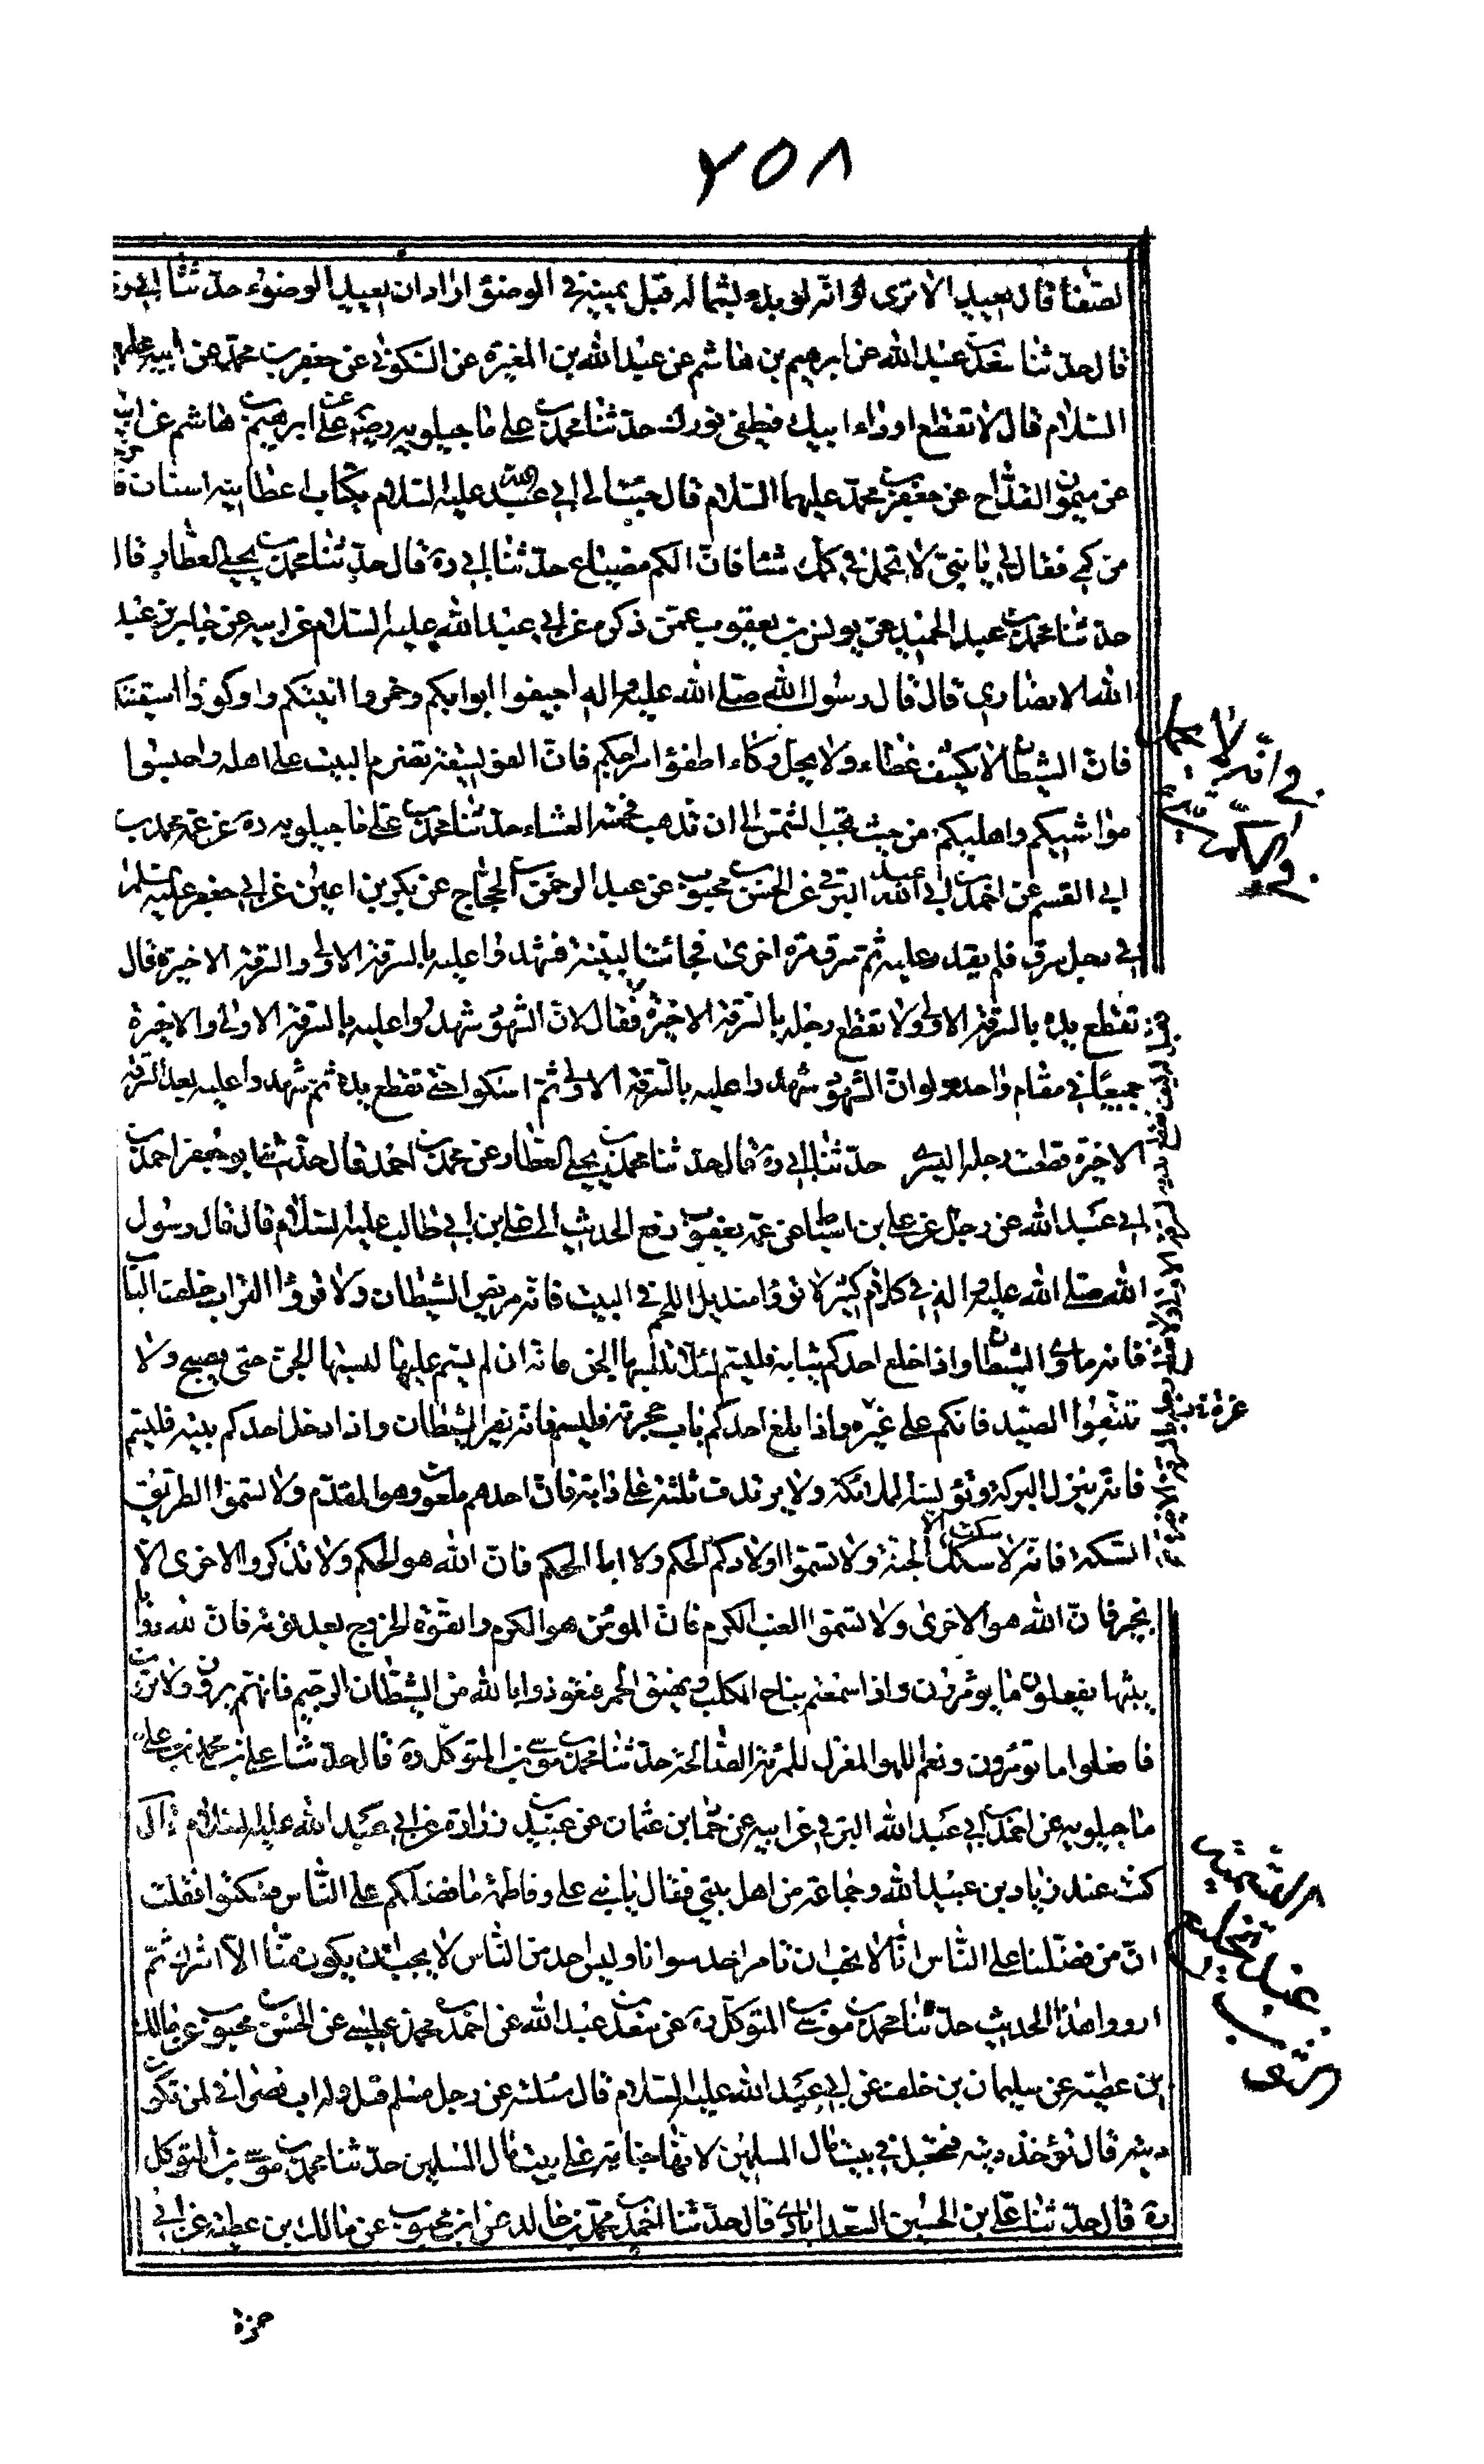 ٢٥٨
قال يعيد الا ترى لو انه بدء بشماله قبل يمينه في الوضوء اراد ان يعيد الوضوء حدثنا ابي ره
قال حدثنا سعد بن عبد الله عن ابرهيم بن هاشم عن عبد الله بن المغيرة عن السكوني عن جعفر بن محمد عن ابيه عليهما
السلام قال لا تقطع اوداء ابيك فيطفى نورك حدثنا محمد بن على ماجيلويه رضي عن على بن ابرهيم بن هاشم عن ابيه
عن ميمون القداح عن جعفر بن محمد عليهما السلام قال جئت الى ابي عبد الله عليه السلام بكتاب اعطانيه انسان
من كمي فقال لي يا بني لا تحمل في كمك شيئا فان الكم مضياع حدثنا ابي ره قال حدثنا محمد بن يحيى العطار قال
حدثنا محمد بن عبد الحميد عن يونس بن يعقوب عمن ذكره عن ابي عبد الله عليه السلام عن ابيه عن جابر بن عبد
الله الانصاري قال قال رسول الله صلى الله عليه واله اجيفوا ابوابكم وخمروا انيتكم واوكوا اسقيتكم
فان الشيطان لا يكشف غطاء ولا يحل وكاء اطفؤا سرجكم فان الفويسقة تضرم البيت على اهله واحبسوا
مواشيكم واهليكم من حيث تجب الشمس الى ان تذهب فحمة العشاء حدثنا محمد بن على ماجيلويه ره عن عمه محمد بن
ابي القسم عن احمد بن ابي عبد الله البرقي عن الحسن بن محبوب عن عبد الرحمن بن الحجاج عن بكير بن اعين عن ابي جعفر عليه السلام
في رجل سرق فلم يقدر عليه ثم سرق مرة اخرى فجائت البينة فشهدوا عليه بالسرقة الاولى والسرقة الاخيرة قال
تقطع يده بالسرقة الاولى ولا تقطع رجله بالسرقة الاخيرة فقال لان الشهود شهدوا عليه بالسرقة الاولى والاخيرة
جميعا في مقام واحد ولو ان الشهود شهدوا عليه بالسرقة الاولى ثم امسكوا حتى تقطع يده ثم شهدوا عليه بعد السرقة
الاخيرة قطعت رجله اليسرى حدثنا ابي ره قال حدثنا محمد بن يحيى العطار عن محمد بن احمد قال حدثنا ابو جعفر احمد بن
ابي عبد الله عن رجل عن على بن اسباط عن عمه يعقوب رفع الحديث الى على بن ابي طالب عليه السلام قال قال رسول
الله صلى الله عليه واله في كلام كثير لا تؤوا منديل اللحم في البيت فانه مربض الشيطان ولا تؤوا التراب خلف الباب
فانه ماوى الشيطان واذا خلع احدكم ثيابه فليسم لئلا تلبسها الجن فانه ان لم يسم عليها لبسها الجن حتى يصبح ولا
تتبعوا الصيد فانكم على غرة واذا بلغ احدكم باب حجرته فليسم فانه يفر الشيطان واذا دخل احدكم بيته فليسلم
فانه ينزل البركة وتؤنسه الملائكة ولا يرتدف ثلثة على دابة فان احدهم ملعون وهو المقدم ولا تسموا الطريق
السكة فانه لا سكة الا سكك الجنة ولا تسموا اولادكم الحكم ولا ابا الحكم فان الله هو الحكم ولا تذكروا الاخرى الا
بخير فان الله هو الاخرى ولا تسموا العنب الكرم فان المؤمن هو الكرم واتقوا الخروج بعد نومة فان لله دوابا
يبثها يفعلون ما يؤمرون واذا سمعتم نباح الكلب ونهيق الحمر فتعوذوا بالله من الشيطان الرجيم فانهم يرون ولا ترون
فافعلوا ما تؤمرون ونعم اللهو المغزل للمرئة الصالحة حدثنا محمد بن موسى بن المتوكل ره قال حدثنا على بن محمد بن على
ماجيلويه عن احمد بن ابي عبد الله البرقي عن ابيه عن حماد بن عثمان عن عبيد بن زرارة عن ابي عبد الله عليه السلام قال
كنت عند زياد بن عبيد الله وجماعة من اهل بيتي فقال يا بني على وفاطمة ما فضلكم على الناس فسكتوا فقلت
ان من فضلنا على الناس انا لا نحب ان نامر احد سوانا وليس احد من الناس لا يحب ان يكون منا الا اشرك ثم
ارووا هذا الحديث حدثنا محمد بن موسى بن المتوكل ره عن سعد بن عبد الله عن احمد بن محمد بن عيسى عن الحسن بن محبوب عن مالك
بن عطية عن سليمان بن خلف عن ابي عبد الله عليه السلام قال سئلته عن رجل مسلم قتل وله اب نصراني لمن تكون
ديته قال تؤخذ ديته فتجعل في بيت مال المسلمين لانها جنايته على بيت مال المسلمين حدثنا محمد بن موسى بن المتوكل
ره قال حدثنا على بن الحسين السعدابادي قال حدثنا احمد بن محمد بن خالد عن ابن محبوب عن مالك بن عطية عن ابي
حمزة